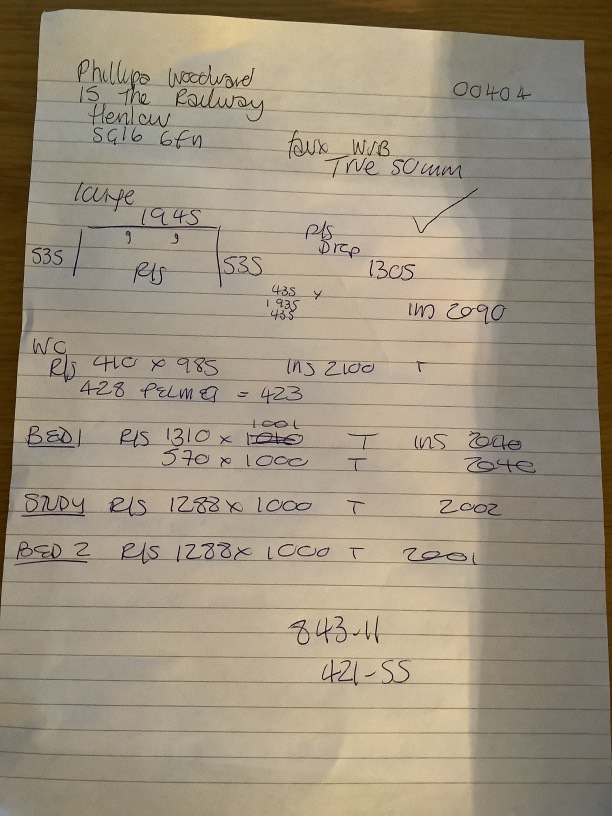 Phillipa Woodward
00404
15 The Railway
Henlow
SG16 6fn
faux WVB
True 50mm
large
1945
535
R/S
535
R/S
Drop
1305
435 x
1935
435
INS 2090
WC
R/S 410 x 985 INS 2100 T
428 PELMET = 423
1001
BED1 R/S 1310 x 1040 T INS 2040
570 x 1000 T 2040
STUDY R/S 1288 x 1000 T 2002
BED 2 R/S 1288 x 1000 T 2001
843-11
421-55